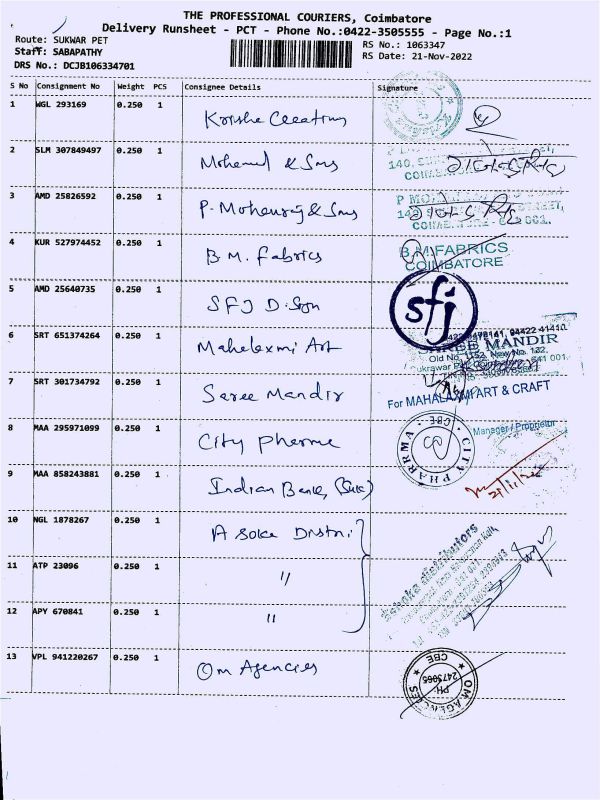 THE PROFESSIONAL COURIERS, Coimbatore
Delivery Runsheet - PCT - Phone No.:0422-3505555 - Page No.:1
Route: SUKWAR PET
RS No.: 1063347
Staff: SABAPATHY
RS Date: 21-Nov-2022
DRS No.: DCJB106334701
S No Consignment No Weight PCS Consignee Details Signature
1 WGL 293169 0.250 1
2 SLM 307849497 0.250 1 Mohanraj & Sons
3 AMD 25826592 0.250 1 P. Mohanraj & Sons
4 KUR 527974452 0.250 1 B M. Fabrics
B.M.FABRICS
COIMBATORE
5 AMD 25640735 0.250 1 SFJ
sfj
6 SRT 651374264 0.250 1 Mahalaxmi Art
94422 41410
MANDIR
Old No. 1152, New No. 132,
641 001.
7 SRT 301734792 0.250 1 Saree Mandir
For MAHALAXMI ART & CRAFT
Manager / Proprietor
8 MAA 295971099 0.250 1 City Pharma
CITY PHARMA CBE
9 MAA 858243881 0.250 1 Indian Bank,
10 NGL 1878267 0.250 1
11 ATP 23096 0.250 1 "
12 APY 670841 0.250 1 "
ashoka distributors
13 VPL 941220267 0.250 1 Om Agencies
OM AGENCIES CBE
PH:
2473065